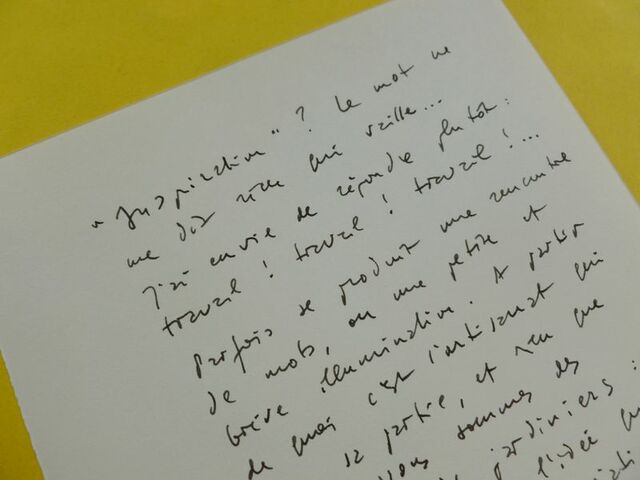 "Inspiration" ? Le mot ne
me dit rien qui vaille...
J'ai envie de répondre plutôt :
travail ! travail ! travail !...
Parfois se produit une rencontre
de mots, ou une petite et
brève illumination. A partir
de quoi c'est l'artisanat qui
sa partie, et rien que
Nous sommes des
jardiniers :
l'idée